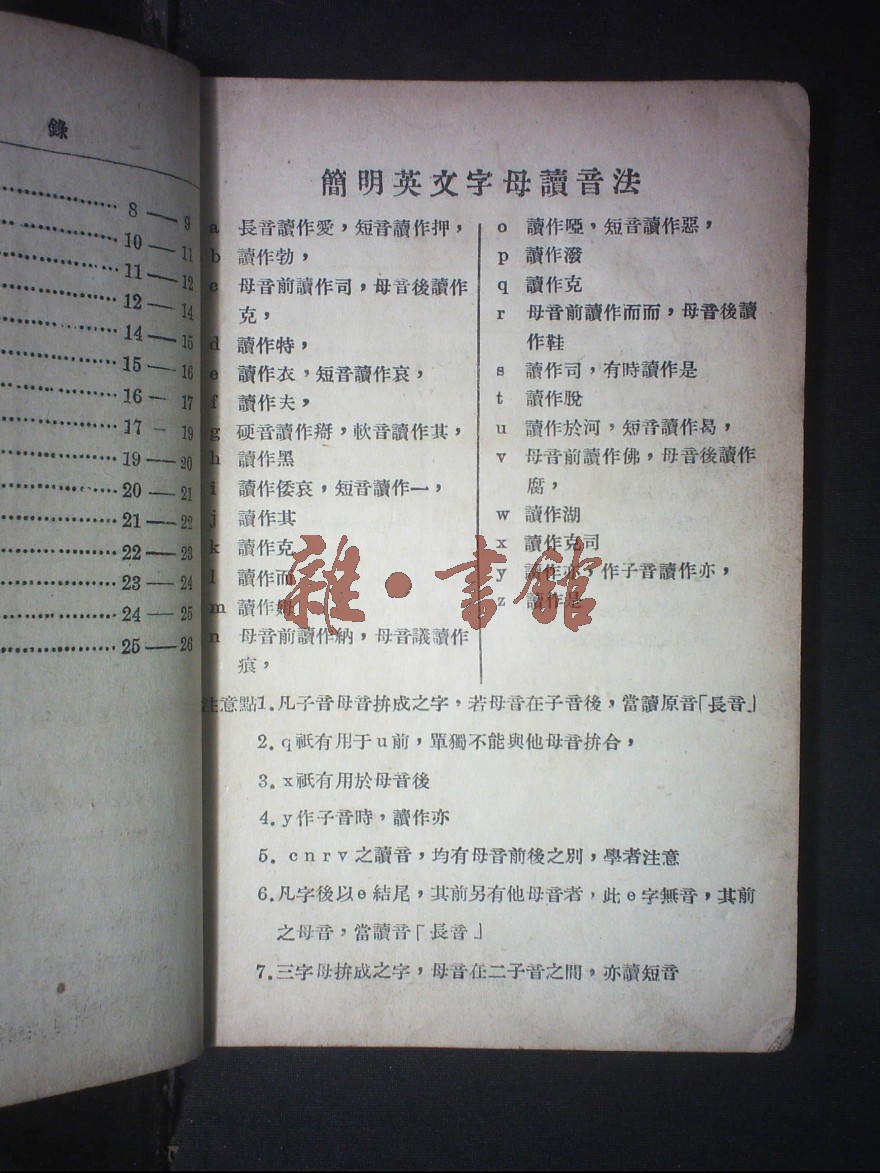 錄
8 — 9
10 — 11
11 — 12
12 — 14
14 — 15
15 — 16
16 — 17
17 — 19
19 — 20
20 — 21
21 — 22
22 — 23
23 — 24
24 — 25
25 — 26
簡明英文字母讀音法
a 長音讀作愛，短音讀作押，
b 讀作勃，
c 母音前讀作司，母音後讀作
克，
d 讀作特，
e 讀作衣，短音讀作哀，
f 讀作夫，
g 硬音讀作掰，軟音讀作其，
h 讀作黑
i 讀作倭哀，短音讀作一，
j 讀作其
k 讀作克
l 讀作而
m 讀作姆
n 母音前讀作納，母音議讀作
痕，
o 讀作啞，短音讀作惡，
p 讀作潑
q 讀作克
r 母音前讀作而而，母音後讀
作鞋
s 讀作司，有時讀作是
t 讀作脫
u 讀作於河，短音讀作曷，
v 母音前讀作佛，母音後讀作
腐，
w 讀作湖
x 讀作克司
y 讀作亦，作子音讀作亦，
z 讀作是
雜·書館
注意點1.凡子音母音拚成之字，若母音在子音後，當讀原音「長音」
2.q祇有用于u前，單獨不能與他母音拚合，
3.x祇有用於母音後
4.y作子音時，讀作亦
5.cnrv之讀音，均有母音前後之別，學者注意
6.凡字後以e結尾，其前另有他母音者，此e字無音，其前
之母音，當讀音「長音」
7.三字母拚成之字，母音在二子音之間，亦讀短音